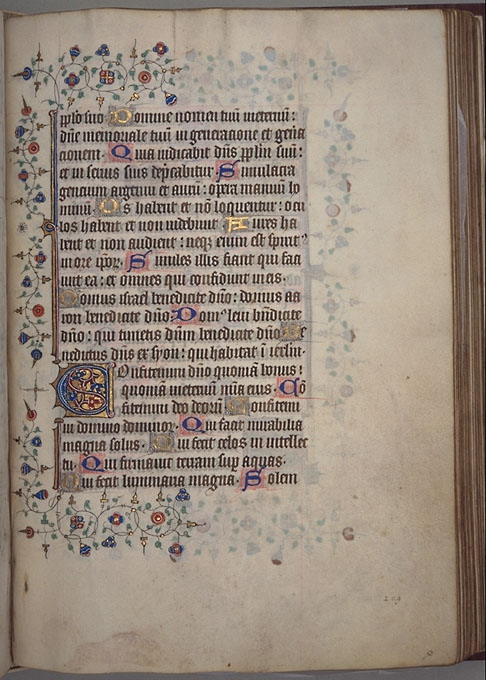 pplo suo. Domine nomen tuū in eternū:
dn̄e memoriale tuū in generacione et gen̄a
cionem. Quia iudicabit dn̄s pplm̄ suū:
et in seruis suis dep̄cabitur. Simulacra
gencium argentū et aurū: opera manuū ho
minū. Os habent et nō loquentur: ocu
los habent et non uidebunt. Aures ha
bent et non audient: neqꝫ enim est sp̄iritꝰ
in ore ip̄oꝝ. Similes illis fiant qui faci
unt ea: et omnes qui confidunt in eis.
Domus israel benedicite dn̄o: domus aa
ron benedicite dn̄o. Domꝰ leui bn̄dicite
dn̄o: qui timetis dn̄m benedicite dn̄o. Be
nedictus dn̄s ex syon: qui habitat ī ierl̄m.
Confitemini dn̄o quoniā bonus:
quoniā in eternū mīa eius. Cō
fitemini deo deorū. Confitemi
ni domino dominoꝝ. Qui facit mirabilia
magna solus. Qui fecit celos in intellec
tu. Qui firmauit terram sup aquas.
Qui fecit luminaria magna. Solem
204